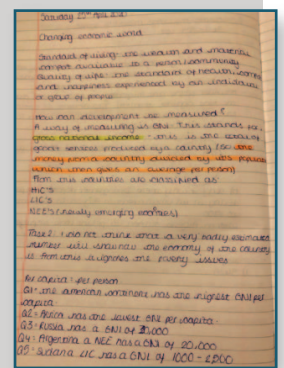 Saturday 25th April 2020
Changing economic world
Standard of living: the wealth and material
comfort available to a person/community
Quality of life: the standard of health, comfort
and happiness experienced by an individual
or group of people
How can development be measured?
A way of measuring is GNI. This stands for
gross national income - this is the total of
goods services produced by a country (so the
money from a country divided by its population
which then gives an average per person)
From this countries are classified as
HIC'S
LIC'S
NEE'S (newly emerging
Task 2: I do not think that a very badly estimated
number will show how the economy of the country
is. from this ignores the poverty issues
Per capita: per person
Q1: the american continent has the highest GNI per
capita
Q2: Africa has the lowest GNI per capita
Q3: Russia has a GNI of
Q4: Argentina a NEE has a GNI of 20,000
Q5: a LIC has a GNI of 1000 -